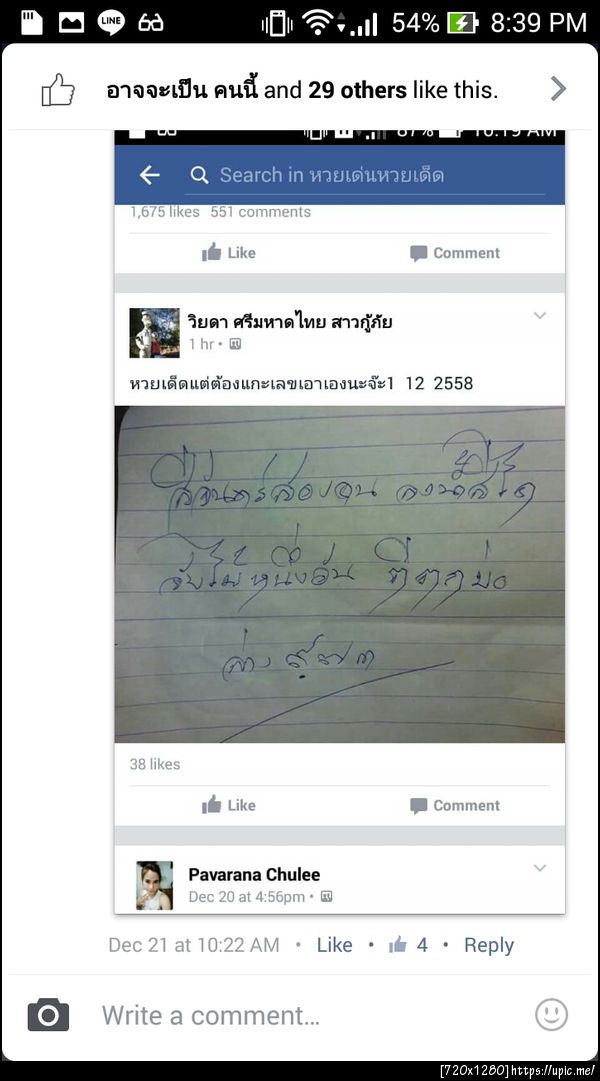 LINE 54% 8:39 PM
อาจจะเป็น คนนี้ and 29 others like this.
87% 10:19 AM
Search in หวยเด่นหวยเด็ด
1,675 likes 551 comments
Like Comment
วิยดา ศรีมหาดไทย สาวกู้ภัย
1 hr •
หวยเด็ดแต่ต้องแกะเลขเอาเองนะจ๊ะ1 12 2558
38 likes
Like Comment
Pavarana Chulee
Dec 20 at 4:56pm •
Dec 21 at 10:22 AM • Like • 4 • Reply
Write a comment...
[720x1280]https://upic.me/